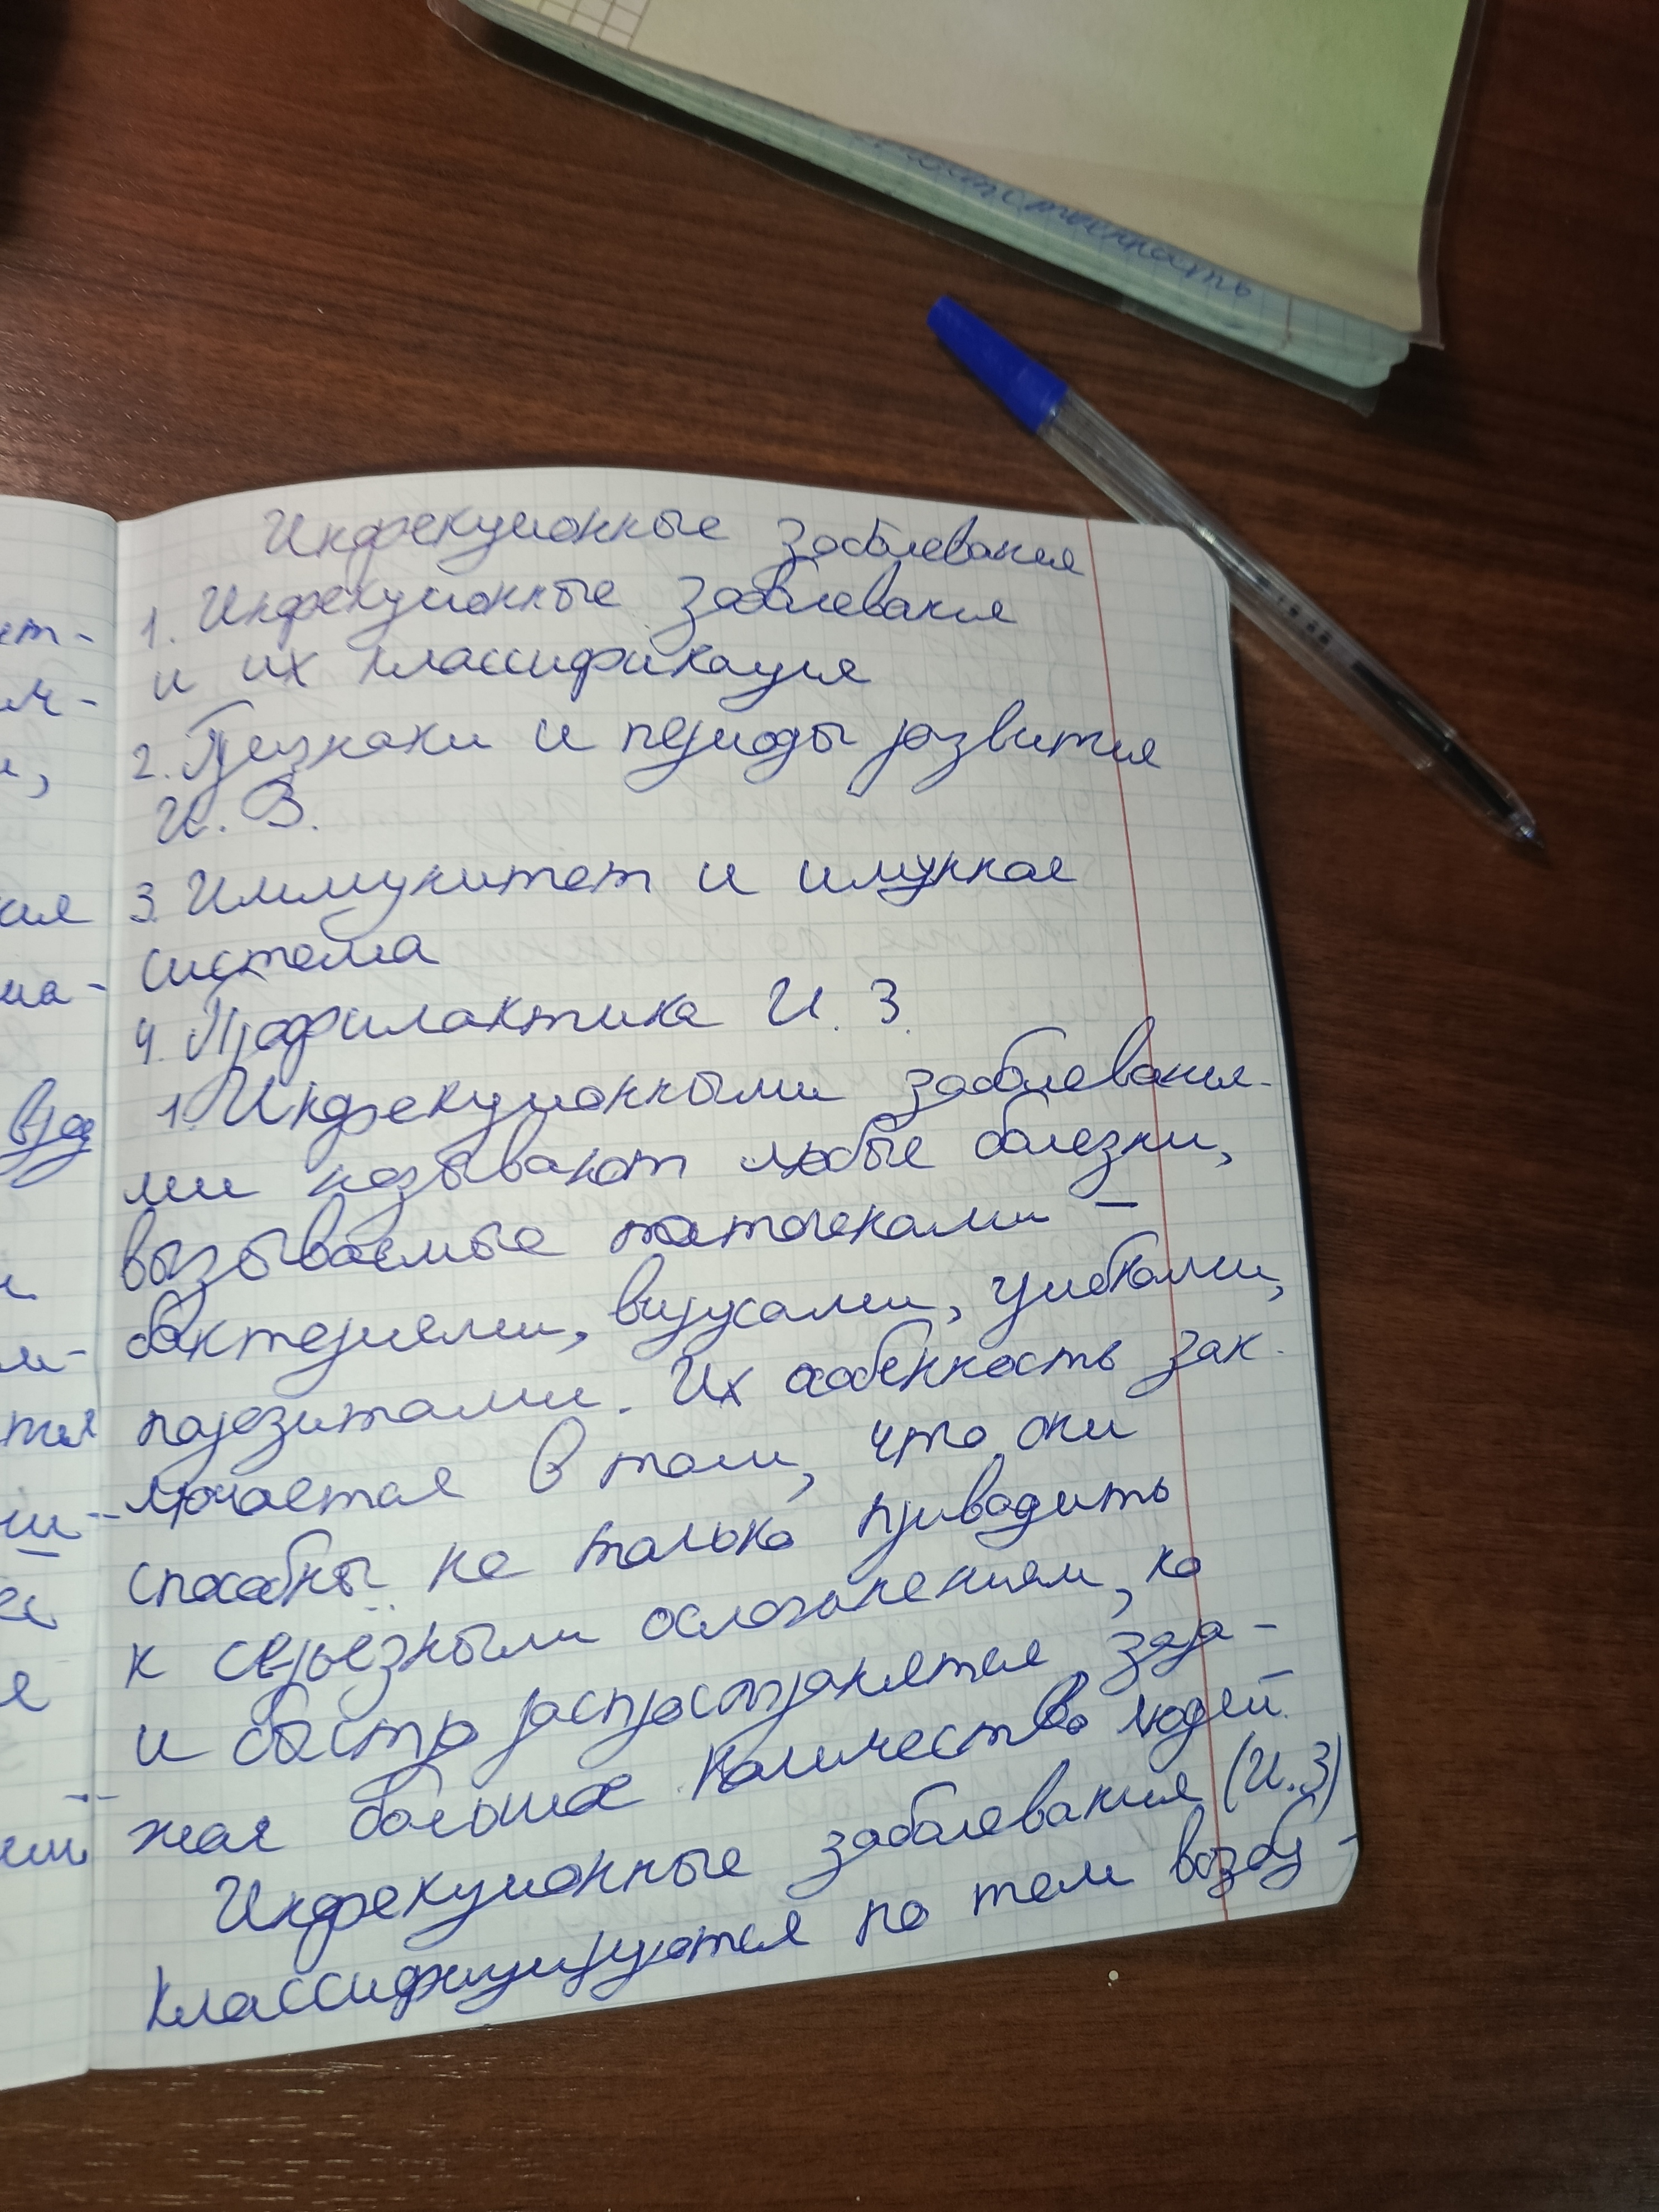 Инфекционные заболевания
1. Инфекционные заболевания
и их классификация
2. Признаки и периоды развития
И. З.
3. Иммунитет и имунная
система
4. Профилактика И. З.
1. Инфекционными заболевания-
ми называют любые болезни,
вызываемые патогенами –
бактериями, вирусами, грибками,
паразитами. Их особенность зак-
лючается в том, что они
способны не только приводить
к серьёзными осложнениям, но
и быстро распространятся зара-
жая большое количество людей.
Инфекционные заболевания (И.З)
классифицируются по тем возбу-